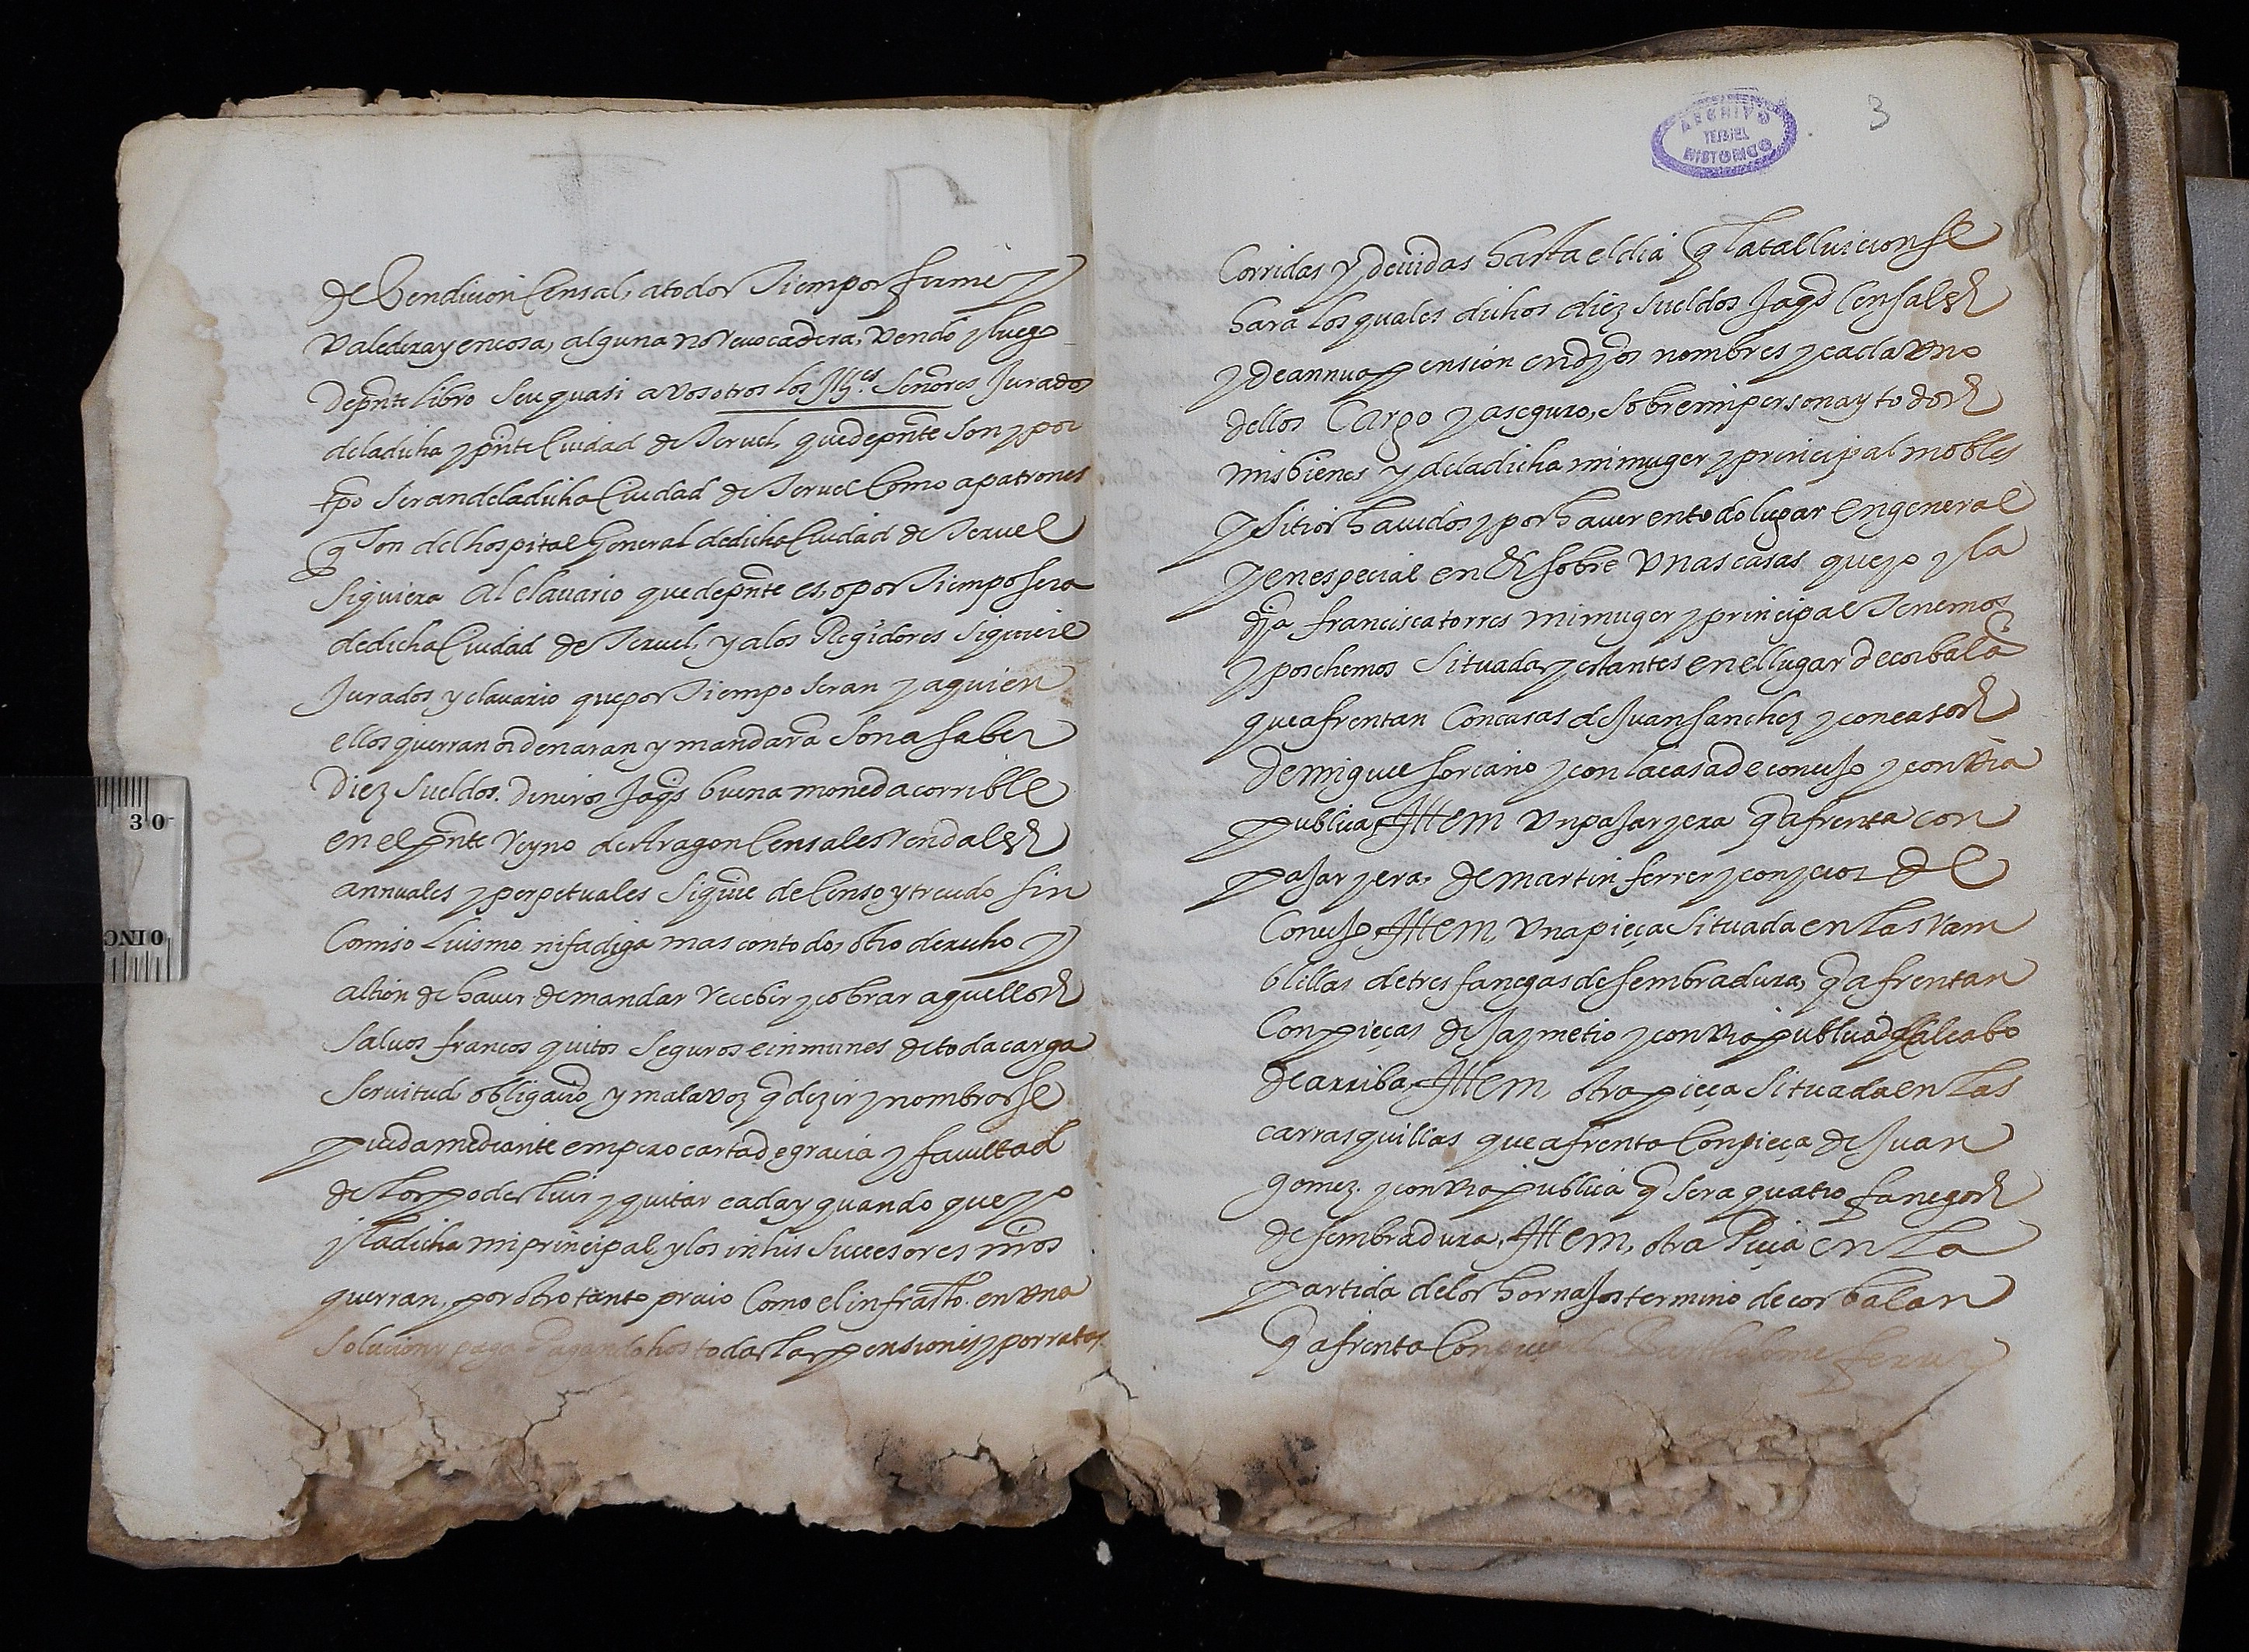 de Vendicion Censal, a todos Tiempos firme y
Valedera y en cosa, alguna no revocadera, vendo y luego
de pnte libro seu quasi a vosotros los Mges. Señores Jurados
de la dicha y pnte Ciudad de Teruel, que de pnte son y por
tpo seran de la dicha Ciudad de Teruel Como a patrones
q son del hospital General de dicha Ciudad de Teruel
siquiera al clavario que de pnte es, o por Tiempo sera
de dicha Ciudad de Teruel, y a los Regidores siquiere
Jurados y clavario que por Tiempo seran y a quien
ellos querran ordenaran y mandara Son a saber
Diez sueldos. Dineros Jaqs buena moneda corrible
en el pnte reyno de Aragon Censales rendales
annuales y perpetuales siquiere de Censo y treudo sin
Comiso luismo ni fadiga mas con todo, otro derecho y
action de haver demandar recebir y cobrar aquellos
salvos francos quitos seguros e inmunes de toda carga
servitud, obligacio y mala voz q dezir y nombrar se
pueda mediante empero carta de gracia y facultad
de los poder luir y quitar cada y quando que yo
y la dicha mi principal, y los in his sucesores mros
querran, por otro tanto precio Como el infrasto. en una
solucion y paga Pagando hos todas las pensiones y porratas
ARCHIVO
TERUEL
HISTORICO
3
Corridas y devidas hasta el dia q la tal luicion se
hara los quales dichos diez sueldos Jaqs Censales
y de annua pension en dhos nombres y cada uno
dellos Cargo y aseguro, sobre mi persona y todos
mis bienes y de la dicha mi muger y principal mobles
y sitios havidos y por haver en todo lugar en general
y en especial en et sobre unas casas que yo y la
dha francisca torres mi muger y principal Tenemos
y poschemos situadas y estantes en el lugar de corbala
que afrentan Con casas de Juan sanchez y con casas
de miguel soriano y con la casa de concejo y con via
publica, Ittem un pajar y era q afrenta con
pajar y era, de martin ferrer y con yecios del
Concejo, Ittem, una pieça situada en las ram
blillas de tres fanegas de sembradura, q afrentan
Con pieças de Jaymetio y con via publica del cabo
de arriba, Ittem, otra pieça situada en las
carrasquillas que afrenta Con pieça de Juan
gomez. y con via publica q sera quatro fanegas
de sembradura, Ittem, otra Pieça en la
partida de los hornajos termino de corbalan
q afrenta Con pieça de Barthelome ferrer